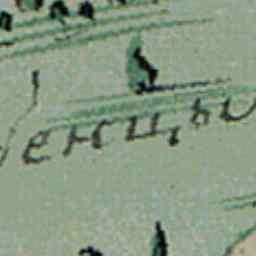 енцы